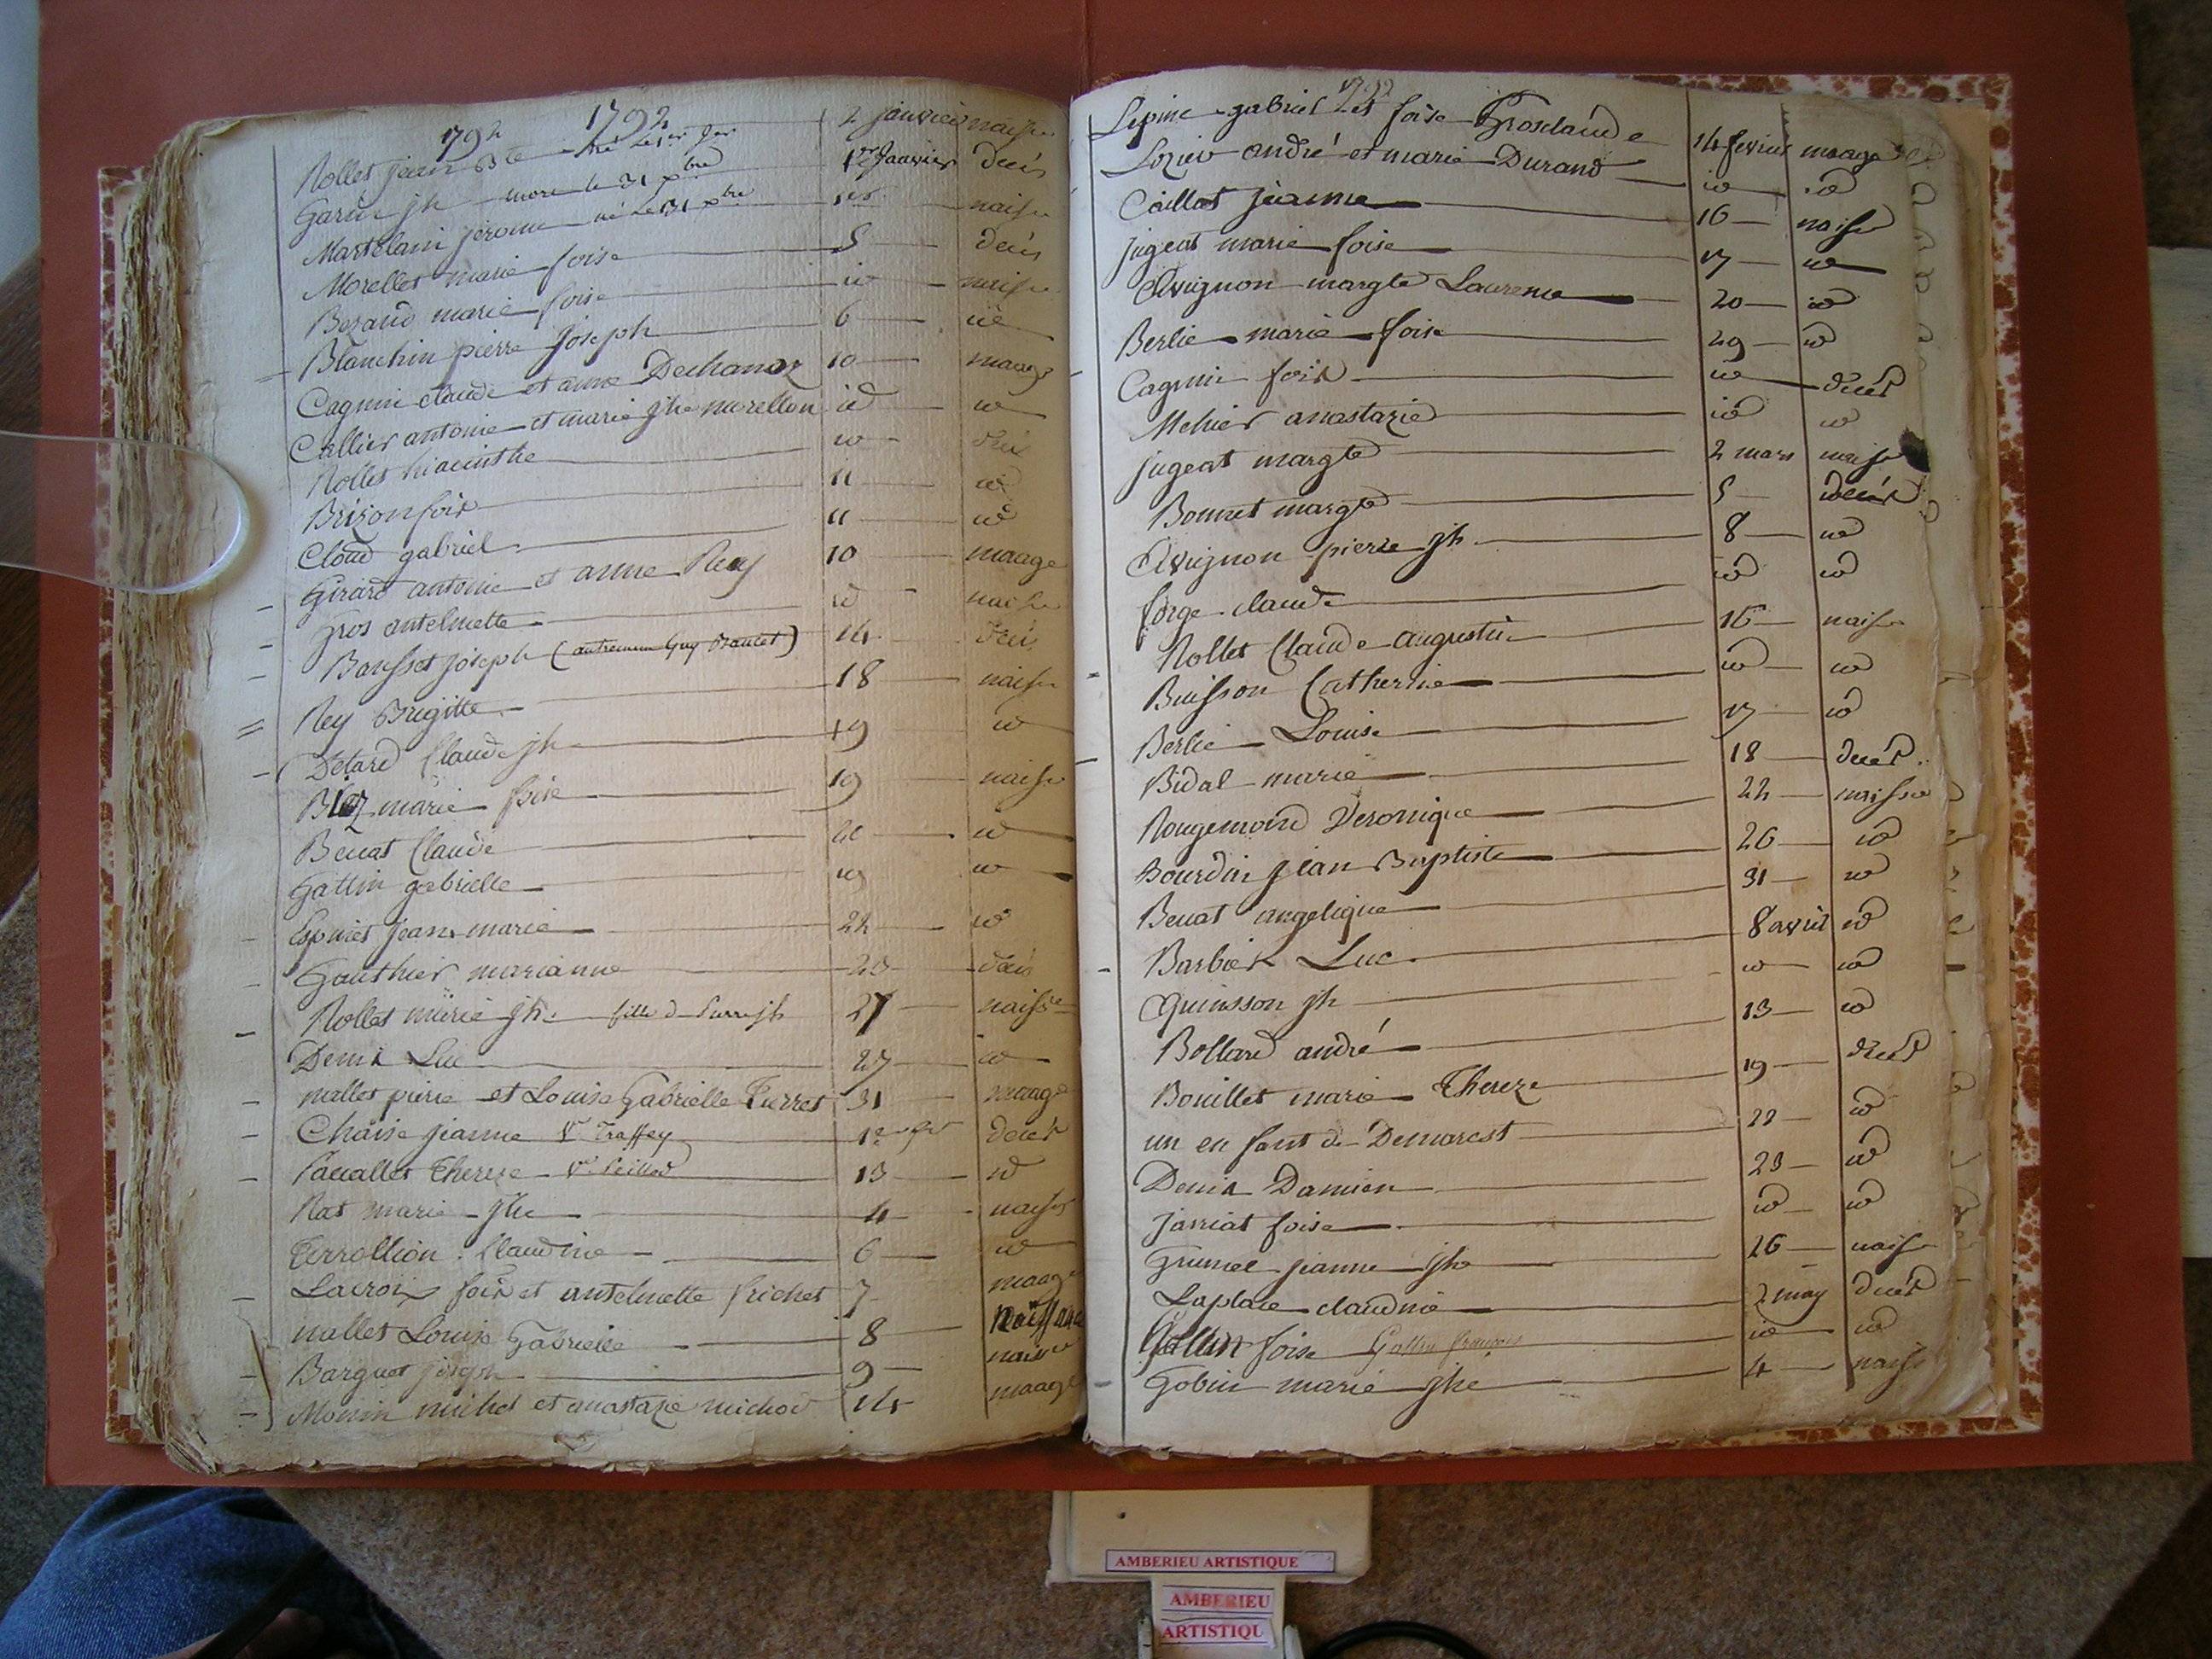 1792 1792
Nollet jean Bte né le 1er jer 2 janvier naisse
Garin jh mort le 31 xbre 1er Janvier decés
Martelain jerome né le 31 xbre 1er naisse
Morellet marie foise 5 decés
Bezand marie foise id naisse
Blanchin pierre joseph 6 id
Cagnin claude et anne Dechanoz 10 maage
Callier antoine et marie jhe morellon id id
Nollet hiacinthe id decés
Brizon fois 11 id
Cloud gabriel 11 id
Girard antoine et anne Rey 10 maage
Gros antelmette id naisse
Bausset joseph 14 decés
Rey Brigitte 18 naisse
Detard Claude jh 19 id
marie foise 19 naisse
Beuat Claude id
Gattin gabrielle 19 id
jean marie 22 id
Gauthier marianne decés
Nollet marie jhe fille de pierre jh 27 naisse
Denis Luc 27 id
nallet piere et Louise Gabrielle 31 maage
Chaise jeanne Ve Traffey 1er decés
Thereze Ve Peillod 13 id
Rat marie jhe 4 naisse
Terrollion Claudine 6 id
Lacroix fois et antelmette frichet 7 maage
nallet Louise Gabrielle 8 naissance
Barguet joseph 9 naisse
Monin michel et anastazie michod 14 maage
1792
Lepine gabriel et foise Grosclaude 14 fevrier maage
Lozier andré et marie Durand id id
Caillat jeanne 16 naisse
jugeat marie foise 17 id
Avignon margte Laurence 20 id
Berlie marie foise 29 id
Cagnin fois id decés
Mehier anastazie id id
jugeat margte 2 mars naisse
Bonnet margte 5 decés
Avignon pierre jh 8 id
forge claude id id
Nollet Claude augustin 16 naisse
Buisson Catherine id id
Berlie Louise 17 id
Bidal marie 18 decés
Rougemond Veronique 22 naisse
Bourdin jean Baptiste 26 id
Beuat angelique 31 id
Barbier Luc 8 avril id
Quinsson jh id id
Bollard andré 13 id
Bouillet marie Thereze 19 decés
un enfant de Demarest 22 id
Denis Damien 23 id
Jarriat foise id id
Grumel jeanne jhe 26 naisse
Laplace claudine 2 may decés
Gallin foise Gallin françois id id
Gobin marie jhe 4 naisse
AMBERIEU ARTISTIQUE
AMBERIEU
ARTISTIQU